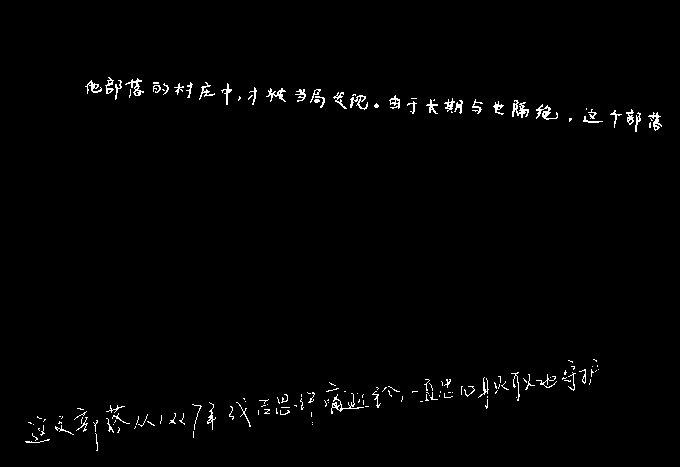 他部落的村庄中,才被当局发现。由于长期与世隔绝,这个部落
这支部落从1227年成吉思汗病逝至今,一直忠心耿耿地守护